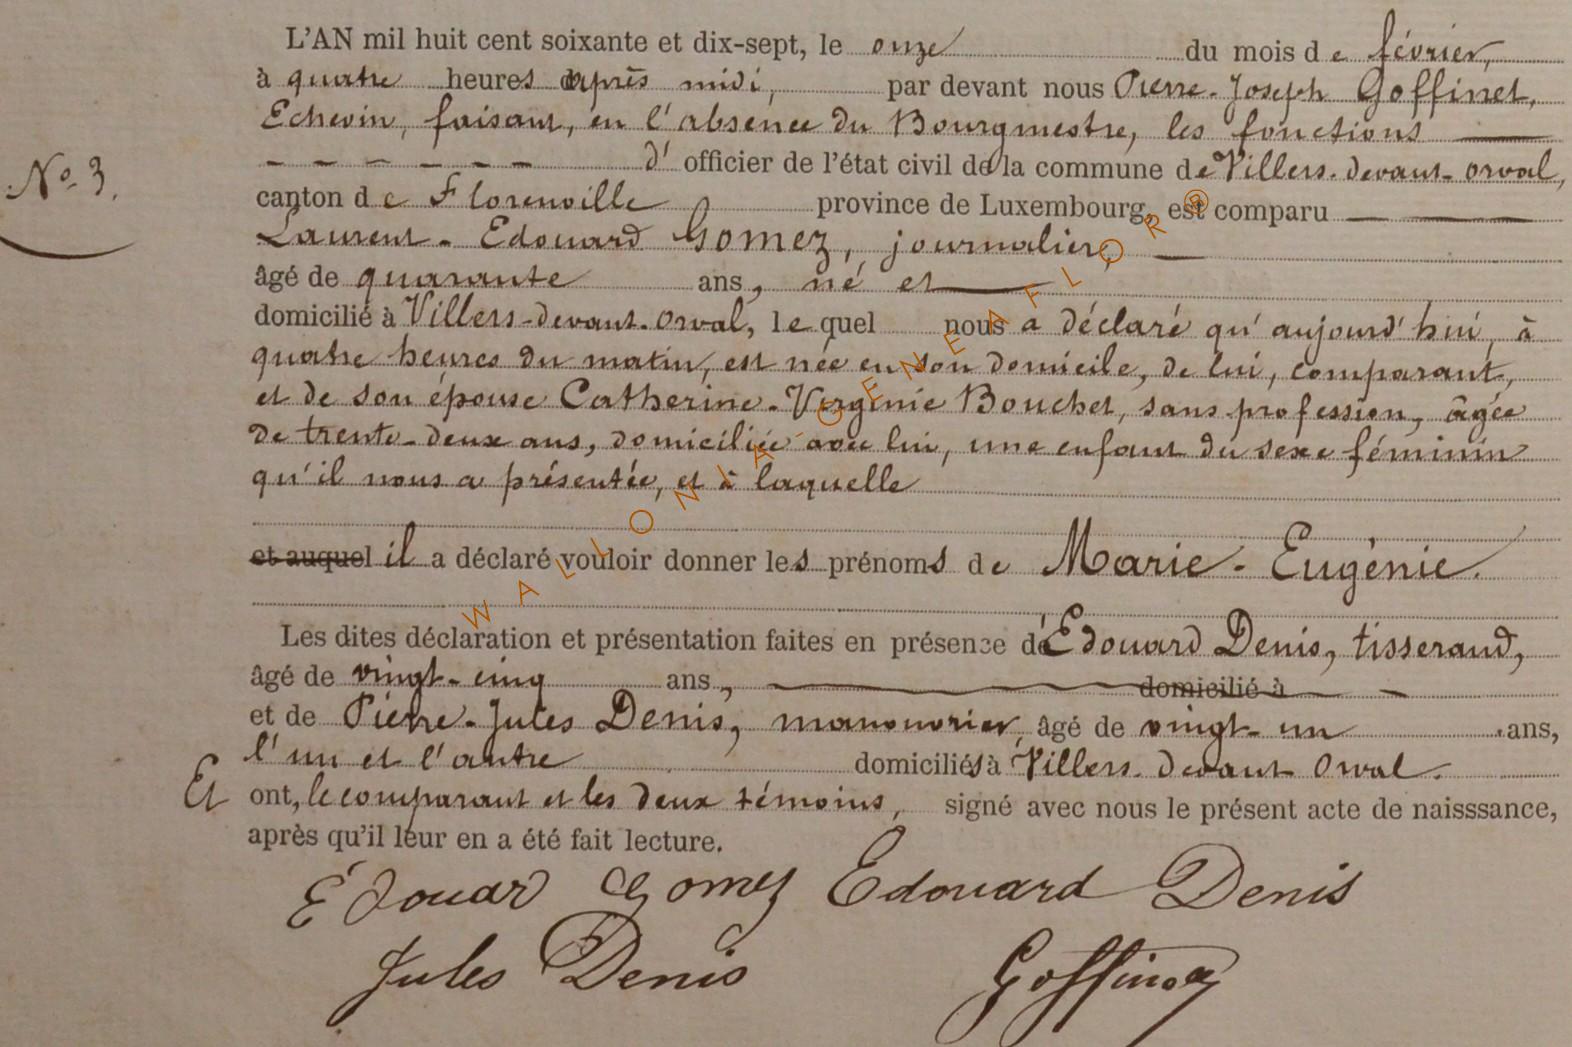 L'AN mil huit cent soixante et dix-sept, le onze du mois de février,
à quatre heures après midi, par devant nous Pierre-Joseph Goffinet,
Echevin, faisant, en l'absence du Bourgmestre, les fonctions
d' officier de l'état civil de la commune de Villers-devant-orval,
N.o 3.
canton de Florenville province de Luxembourg, est comparu
Laurent-Edouard Gomez, journalier,
âgé de quarante ans, né et
domicilié à Villers-devant-orval, lequel nous a déclaré qu'aujourd'hui, à
quatre heures du matin, est née en son domicile, de lui, comparant,
et de son épouse Catherine-Virginie Bouchet, sans profession, âgée
de trente-deux ans, domiciliée avec lui, une enfant du sexe féminin
qu'il nous a présentée, et à laquelle
et auquel il a déclaré vouloir donner les prénoms de Marie-Eugénie.
Les dites déclaration et présentation faites en présence de Edouard Denis, tisserand,
âgé de vingt-cinq ans, domicilié à
et de Pierre-Jules Denis, manouvrier, âgé de vingt-un ans,
l'un et l'autre domiciliés à Villers-devant Orval.
Et ont, le comparant et les deux témoins, signé avec nous le présent acte de naisssance,
après qu'il leur en a été fait lecture.
Édouard Gomez Edouard Denis
Jules Denis Goffinet
WALLONIA GENEAFLOR ®